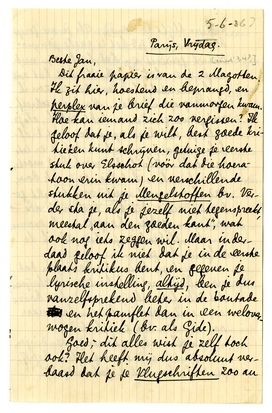 5-6-86?
Parijs, Vrijdag.
Beste Jan,
Dit fraaie papier is van de 2 Magotten.
Ik zit hier, hoestend en beprangd, en
perplex van je brief die vanmorgen kwam.
Hoe kan iemand zich zoo vergissen? Ik
geloof dat je, als je wilt, best goede kri-
tieken kunt schrijven, getuige je eerste
stuk over Elsschot (vóór dat die hoera-
toon erin kwam) en verschillende
stukken uit je Mengelstoffen bv. Ver-
der sta je, als je jezelf niet tegenspreekt,
meestal „aan den goeden kant", wat
ook nog iets zeggen wil. Maar inder-
daad geloof ik niet dat je in de eerste
plaats kritikus bent, en gegeven je
lyrische instelling, altijd, ben je dus
vanzelfsprekend beter in de boutade
en het pamflet dan in een welover-
wogen kritiek (bv. als Gide).
Goed; dit alles wist je zelf toch
ook? Het heeft mij dus absoluut ver-
baasd dat je je Vlugschriften zoo au